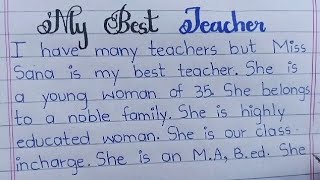 My Best Teacher
I have many teachers but Miss
Sana is my best teacher. She is
a young woman of 35. She belongs
to a noble family. She is highly
educated woman. She is our class
incharge. She is an M.A, B.ed. She